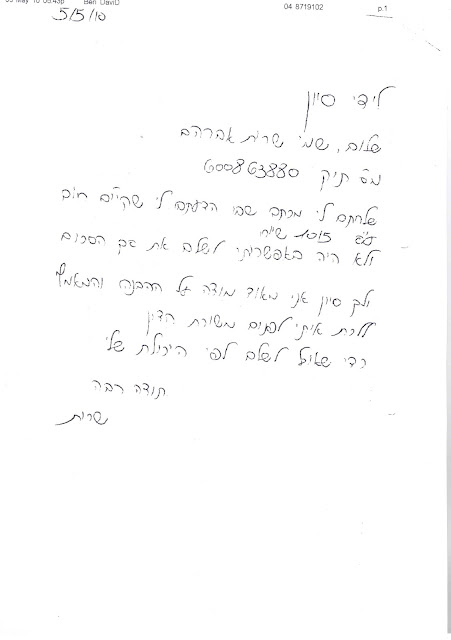 05 May 10 06:43p Ben DaviD 04 8719102 p.1
5/5/10
לידי סיון
שלום, שמי שרית אברהם
מס תיק 600863880
שלחתם לי מכתב שבו הודעתם לי שקיים חוב
ע"ס 1015 ש"ח
ולא היה באפשרותי לשלם את סך הסכום
ולכן סיון אני מאוד מודה על ההבנה והמאמץ
ללכת איתי לפנים משורת הדין
כדי שאוכל לשלם לפי היכולת שלי
תודה רבה
שרית